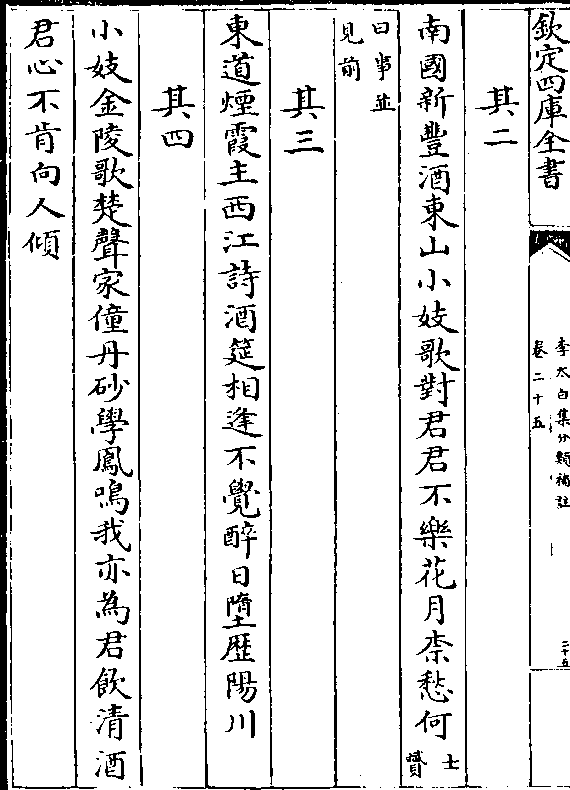 欽定四庫全書
李太白集分類補註
卷二十五
二十五
其二
南國新豐酒東山小妓歌對君君不樂花月柰愁何士贇
曰事並
見前
其三
東道煙霞主西江詩酒筵相逢不覺醉日墮歴陽川
其四
小妓金陵歌楚聲家僮丹砂學鳳鳴我亦為君飲清酒
君心不肯向人傾